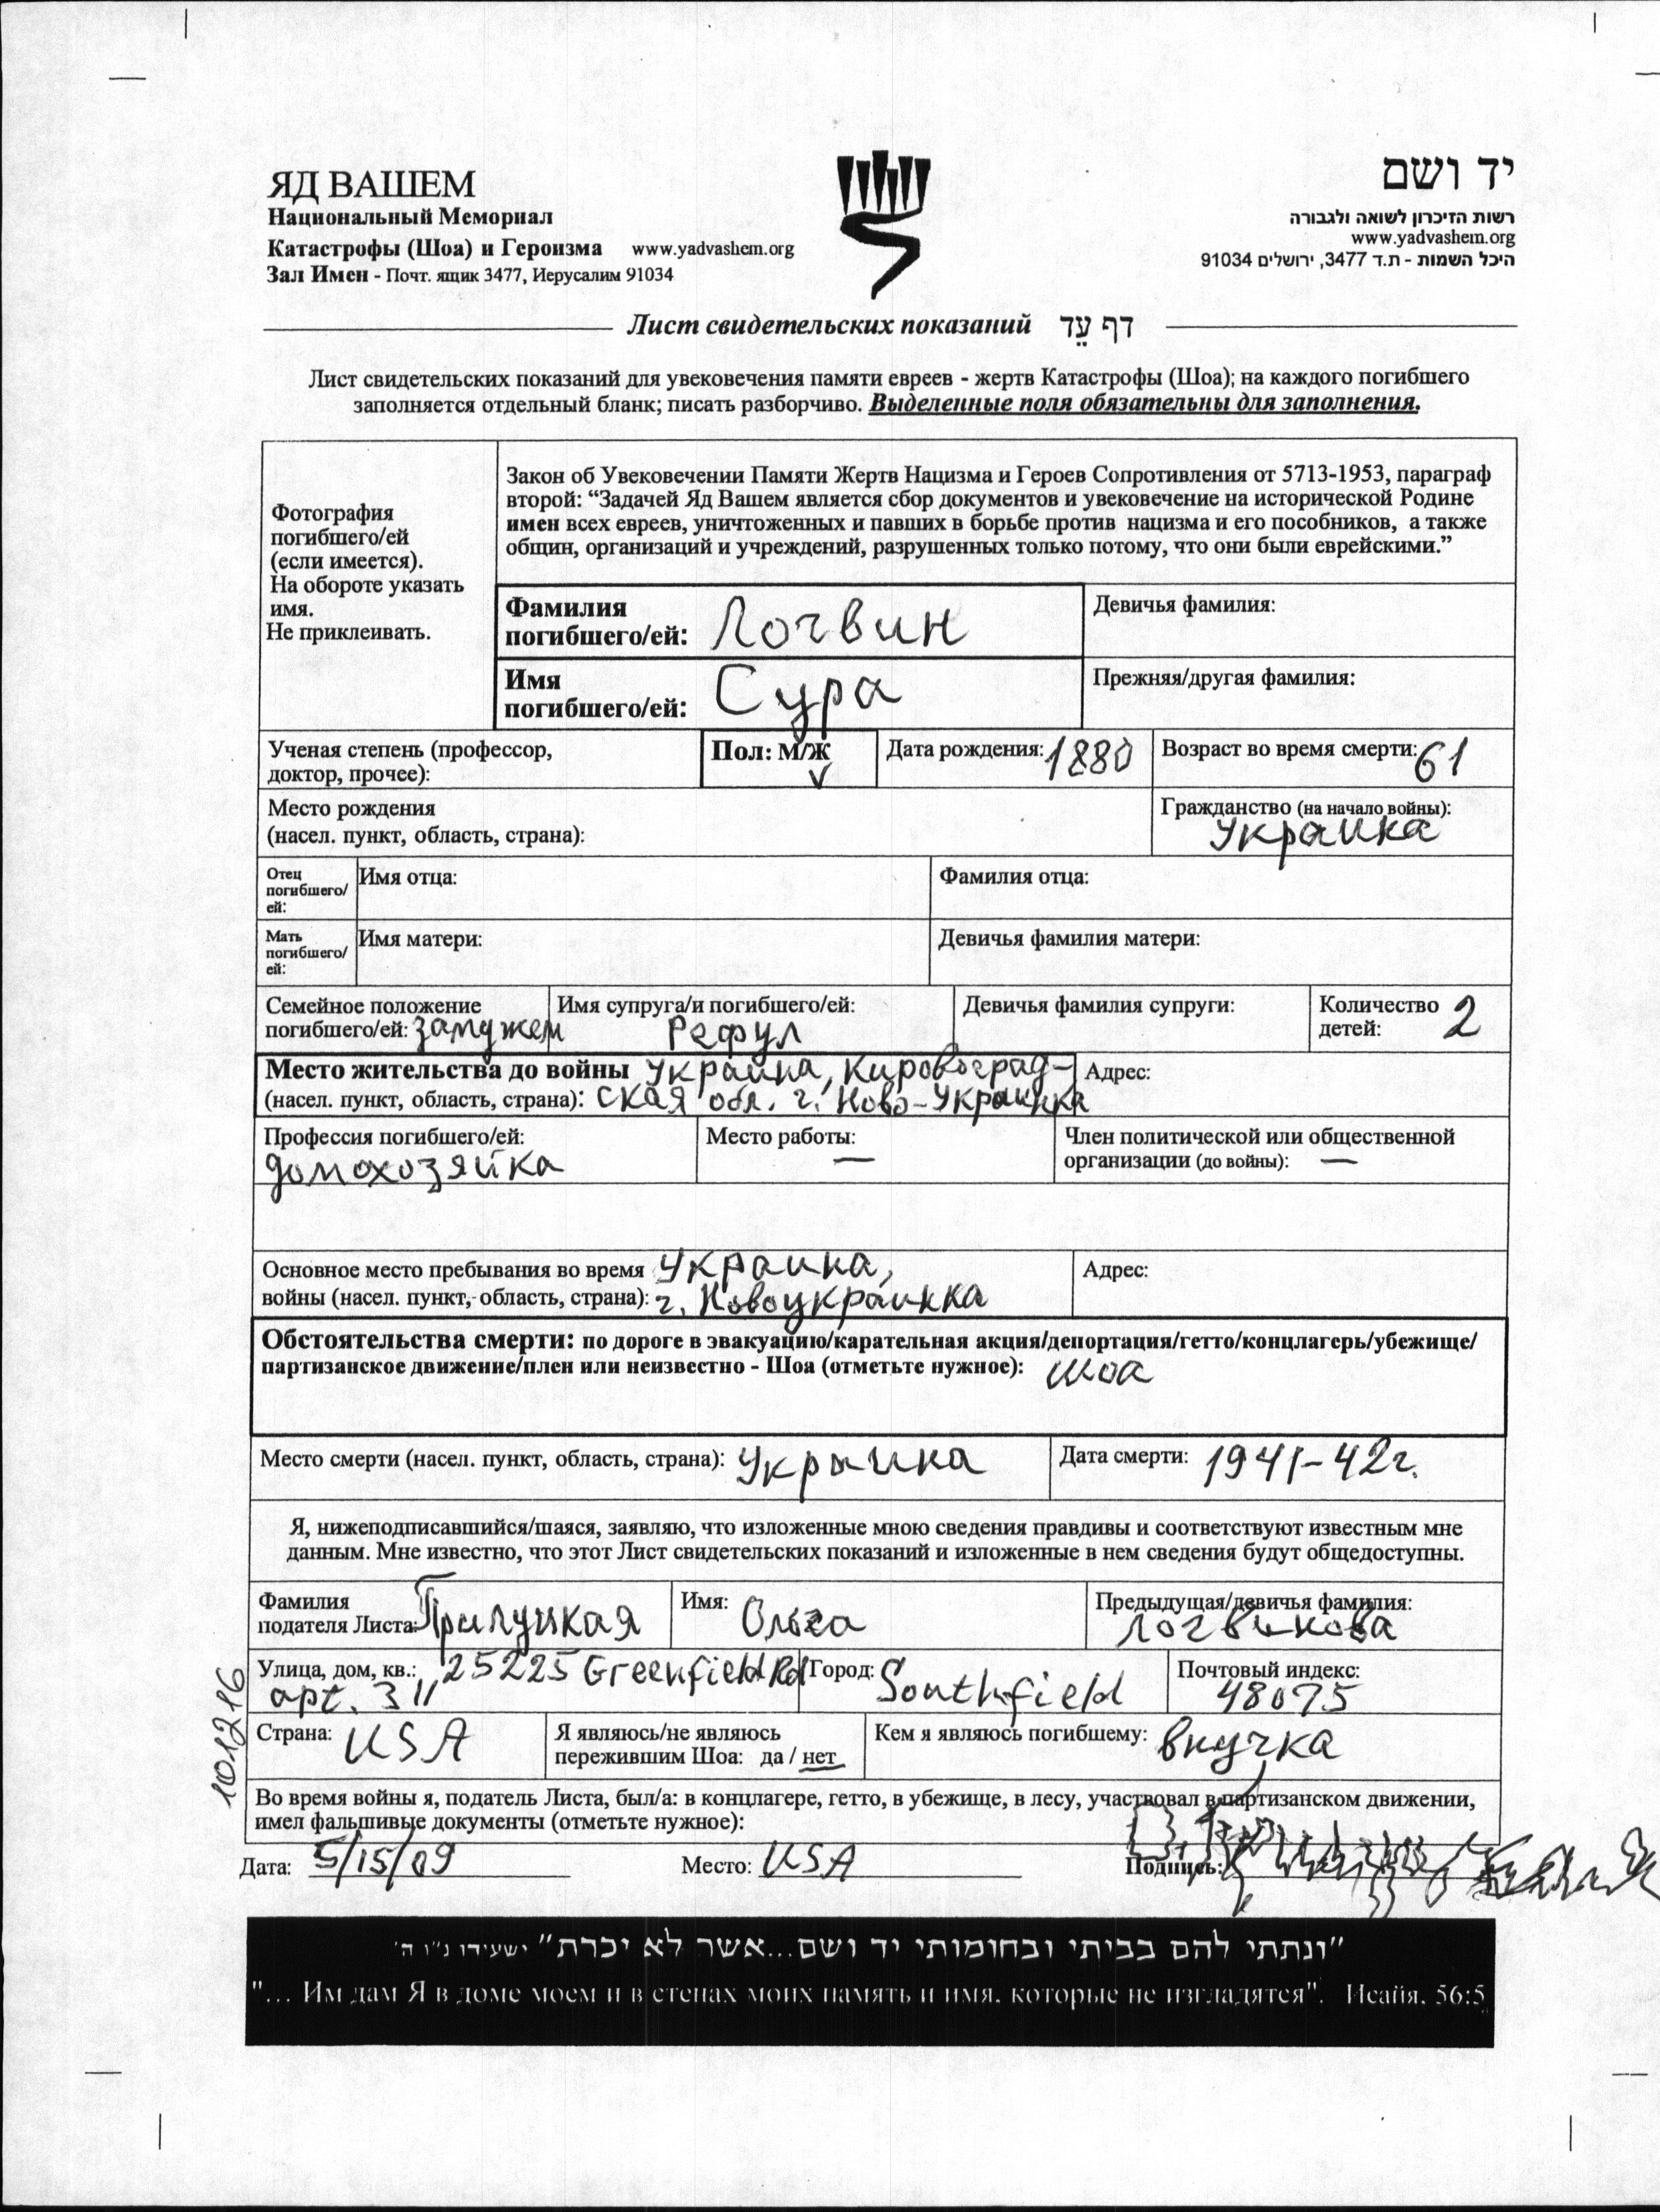 ЯД ВАШЕМ
Национальный Мемориал
Катастрофы (Шоа) и Героизма www.yadvashem.org
Зал Имен - Почт. ящик 3477, Иерусалим 91034
יד ושם
רשות הזיכרון לשואה ולגבורה
www.yadvashem.org
היכל השמות - ת.ד 3477, ירושלים 91034
Лист свидетельских показаний דף עֵד
Лист свидетельских показаний для увековечения памяти евреев - жертв Катастрофы (Шоа); на каждого погибшего
заполняется отдельный бланк; писать разборчиво. Выделенные поля обязательны для заполнения.
Фотография
погибшего/ей
(если имеется).
На обороте указать
имя.
Не приклеивать.
Закон об Увековечении Памяти Жертв Нацизма и Героев Сопротивления от 5713-1953, параграф
второй: “Задачей Яд Вашем является сбор документов и увековечение на исторической Родине
имен всех евреев, уничтоженных и павших в борьбе против нацизма и его пособников, а также
общин, организаций и учреждений, разрушенных только потому, что они были еврейскими.”
Фамилия
погибшего/ей: Логвин
Девичья фамилия:
Имя
погибшего/ей: Сура
Прежняя/другая фамилия:
Ученая степень (профессор,
доктор, прочее):
Пол: М/Ж
Дата рождения: 1880
Возраст во время смерти: 61
Место рождения
(насел. пункт, область, страна):
Гражданство (на начало войны):
Украина
Отец
погибшего/
ей:
Имя отца:
Фамилия отца:
Мать
погибшего/
ей:
Имя матери:
Девичья фамилия матери:
Семейное положение
погибшего/ей: замужем
Имя супруга/и погибшего/ей:
Рефул
Девичья фамилия супруги:
Количество
детей: 2
Место жительства до войны Украина, Кировоград-
(насел. пункт, область, страна): ская обл. г. Ново-Украинка
Адрес:
Профессия погибшего/ей:
домохозяйка
Место работы:
—
Член политической или общественной
организации (до войны): —
Основное место пребывания во время Украина,
войны (насел. пункт, область, страна): г. Новоукраинка
Адрес:
Обстоятельства смерти: по дороге в эвакуацию/карательная акция/депортация/гетто/концлагерь/убежище/
партизанское движение/плен или неизвестно - Шоа (отметьте нужное): Шоа
Место смерти (насел. пункт, область, страна): Украина
Дата смерти: 1941-42г.
Я, нижеподписавшийся/шаяся, заявляю, что изложенные мною сведения правдивы и соответствуют известным мне
данным. Мне известно, что этот Лист свидетельских показаний и изложенные в нем сведения будут общедоступны.
Фамилия
подателя Листа: Прилуцкая
Имя: Ольга
Предыдущая/девичья фамилия:
Логвинова
Улица, дом, кв.: 25225 Greenfield Rd
apt. 311
Город: Southfield
Почтовый индекс:
48075
Страна: USA
Я являюсь/не являюсь
пережившим Шоа: да / нет
Кем я являюсь погибшему: внучка
101216
Во время войны я, податель Листа, был/а: в концлагере, гетто, в убежище, в лесу, участвовал в партизанском движении,
имел фальшивые документы (отметьте нужное):
Дата: 5/15/09 Место: USA Подпись:
"ונתתי להם בביתי ובחומותי יד ושם...אשר לא יכרת" ישעיהו נ"ו ה'
"... Им дам Я в доме моем и в стенах моих память и имя, которые не изгладятся". Исайя, 56:5